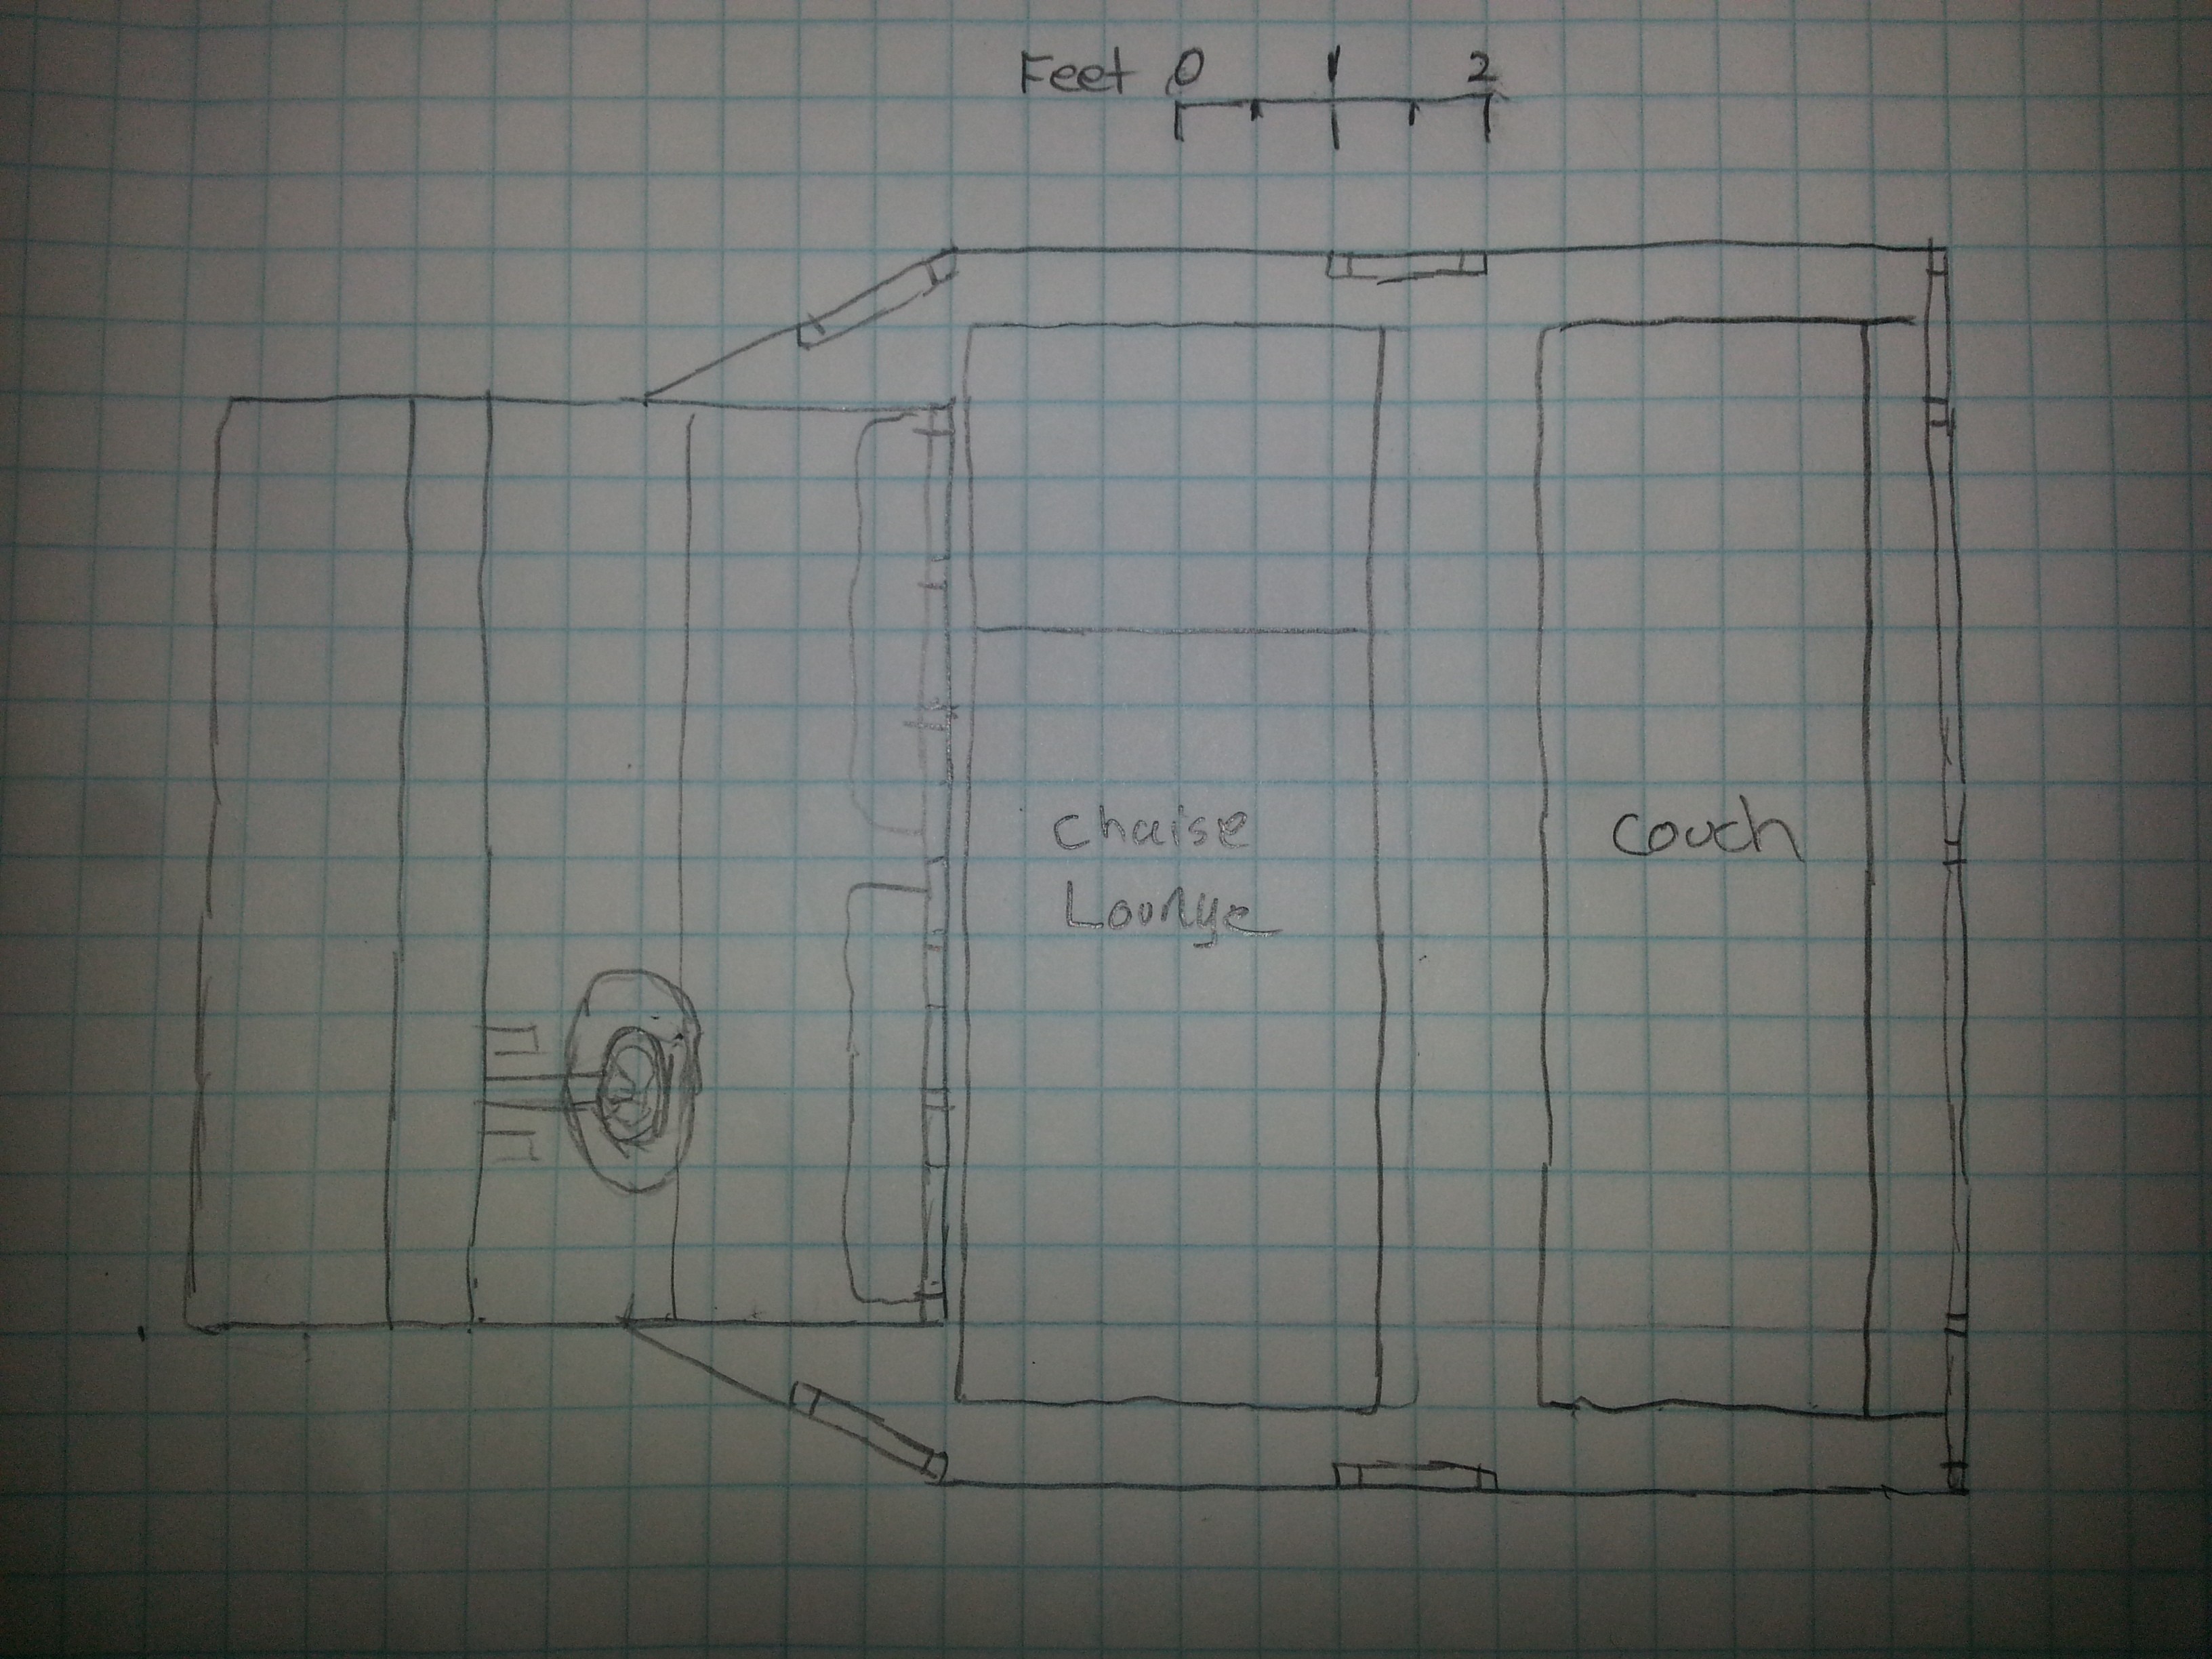 Feet 0 1 2
Chaise
Lounge
Couch